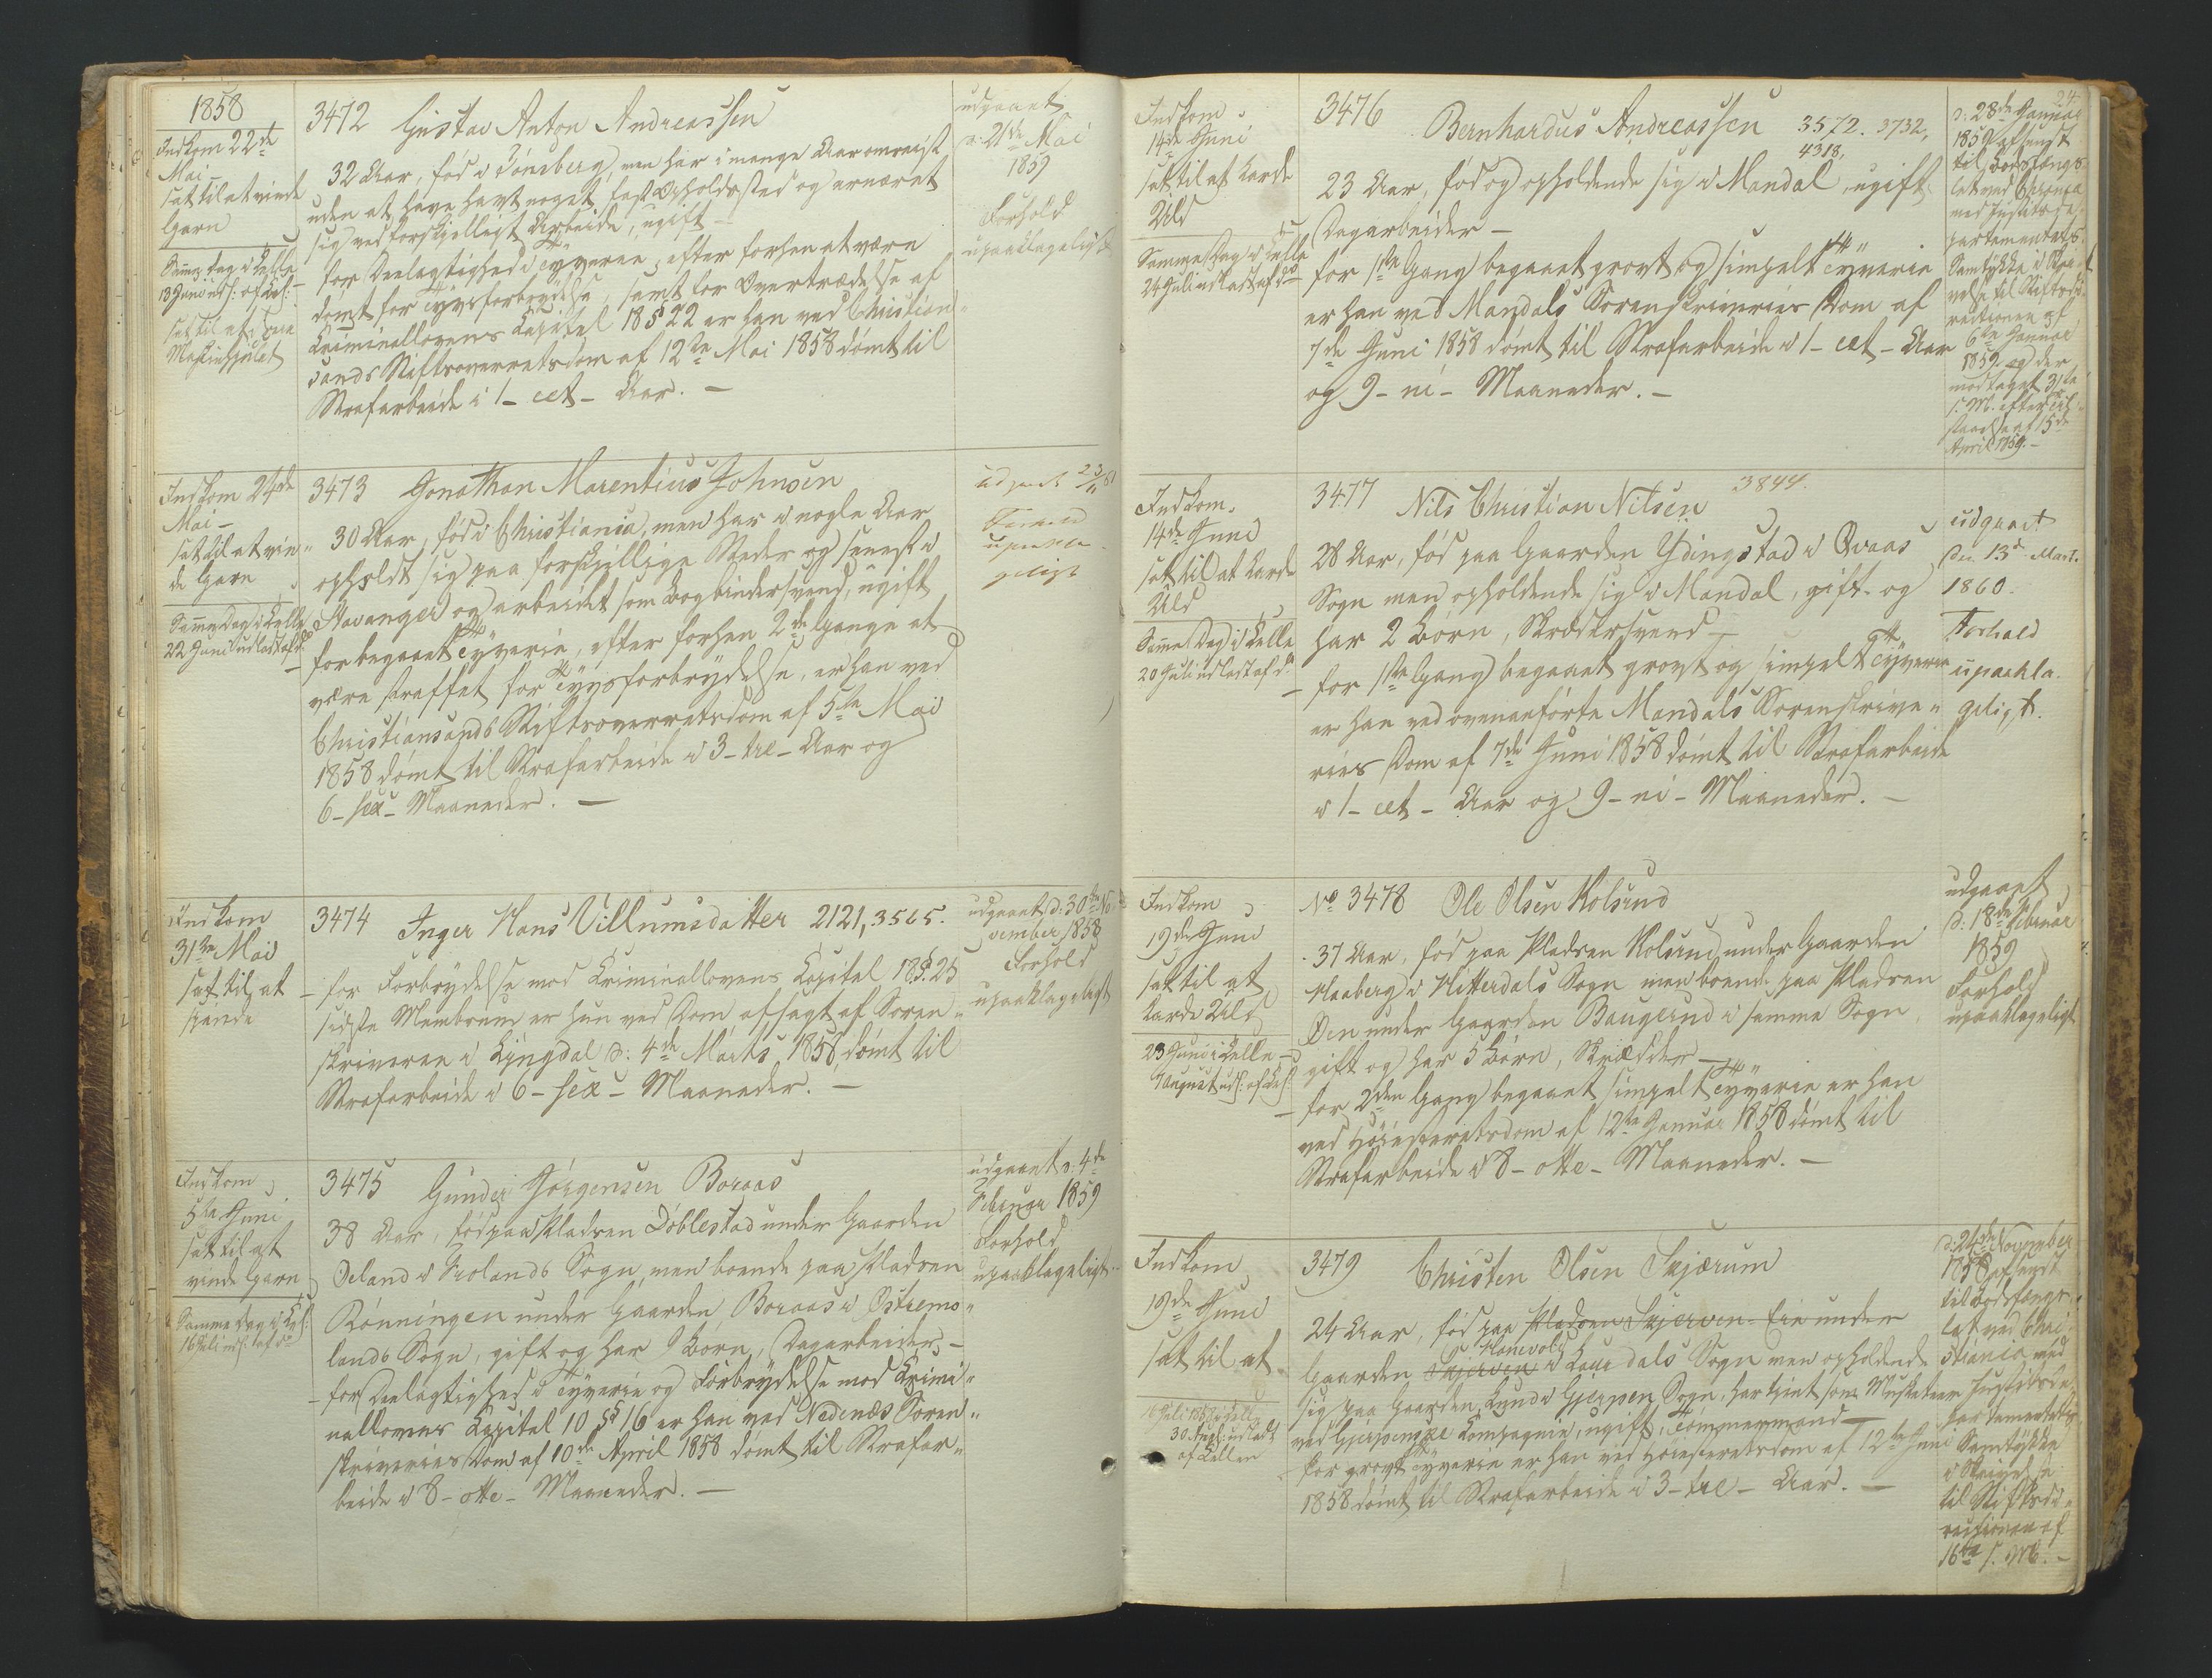 1858
Indkom 22de
Mai
sat til at vinde
Garn
Samme Dag i Celle
13 Juni uds: af Cel:
sat til at
3472 Gustav Anton Andreassen
32 Aar, fød i Tønsberg, men har i mange Aar omreist
uden at have havt noget fast Opholdssted og ernæret
sig ved forskjelligt Arbeide, ugift
for Deelagtighed i Tyverie, efter forhen at være
dømt for Tyvsforbrydelse, samt for Overtrædelse af
Criminallovens Capitel 18 § 22 er han ved Christian
sands Stiftsoverretsdom af 12te Mai 1858 dømt til
Strafarbeide i 1 - eet - Aar. -
udgaaet
d: 21de Mai
1859
Forhold
upaaklageligt
Indkom 24de
Mai -
sat til at vin"
de Garn
Samme Dag i Celle
22 Juni udladt af do
3473 Jonathan Marentius Johnsen
30 Aar, fød i Christiania, men har i nogle Aar
opholdt sig paa forskjellige Steder og senest i
Stavanger og arbeidet som Bogbindersvend, ugift
for begaaet Tyverie, efter forhen 2de Gange at
være straffet for Tyvsforbrydelse, er han ved
Christiansands Stiftsoverretsdom af 5te Mai
1858 dømt til Strafarbeide i 3 - tre - Aar og
6 - sex - Maaneder. -
udgaaet 23/11 61
Forhold
upaakla
geligt
Indkom
31te Mai
sat til at
spinde
3474 Inger Hans Villumsdatter 2121, 3565.
- for Forbrydelse mod Criminallovens Capitel 18 § 25
sidste Membrum er hun ved Dom afsagt af Soren"
skriveren i Lyngdal d: 4de Marts 1858, dømt til
Strafarbeide i 6 - sex - Maaneder. -
udgaaet d: 30te No
vember 1858
Forhold
upaaklageligt
Indkom
5te Juni
sat til at
vinde Garn
Samme Dag i Cel:
16 Juli uds: af do
3475 Gunder Jørgensen Boraas
38 Aar, fød paa Pladsen Døblestad under Gaarden
Øeland i Frolands Sogn, men boende paa Pladsen
Rønningen under Gaarden Boraas i Østremo"
lands Sogn, gift og har 9 Børn, Dagarbeider -
- for Deelagtighed i Tyverie og Forbrydelse mod Crimi"
nallovens Capitel 10 §§ 16 er han ved Nedenæs Soren"
skriveries Dom af 10de April 1858 dømt til Strafar"
beide i 8 - otte - Maaneder. -
udgaaet d. 4de
Februar 1859
Forhold
upaaklageligt
24
Indkom
14de Juni
sat til at karde
Uld
Samme Dag i Celle
26 Juli udladt af do
3476 Bernhardus Andreassen 3572. 3732,
4318,
23 Aar, fød og opholdende sig i Mandal, ugift
Dagarbeider -
for 1ste Gang begaaet grovt og simpelt Tyverie
er han ved Mandals Sorenskriveries Dom af
7de Juni 1858 dømt til Strafarbeide i 1 - eet - Aar
og 9 - ni - Maaneder. -
d: 28de Januar
1859 afsendt
til Bodsfængs
let ved Christia
med Justitsde
partementets
Samtykke i Skri
velse til Stiftsdi
rectionen af
6te Januar
1859. og der
modtaget 31te
s. M. efter
af 15de
April 1859. -
Indkom.
14de Juni
sat til at karde
Uld
Samme Dag i Celle
20 Juli udladt af do
3477 Nils Christian Nilsen 3844.
28 Aar, fød paa Gaarden Ydingstad i Qvaas
Sogn men opholdende sig i Mandal, gift og
har 2 Børn, Skrædersvend -
for 1ste Gang begaaet grovt og simpelt Tyverie
er han ved ovenanførte Mandals Sorenskrive"
ries Dom af 7de Juni 1858 dømt til Strafarbeide
i 1 - eet - Aar og 9 - ni - Maaneder. -
udgaaet
den 13de Mart.
1860.
Forhold
upaakla
geligt.
Indkom
19de Juni
sat til at
karde Uld
23 Juni i Celle -
7 August uds: af Cel:
No 3478 Ole Olsen Kolsrud
37 Aar, fød paa Pladsen Kolsrud under Gaarden
Haaberg i Hitterdals Sogn men boende paa Pladsen
Øen under Gaarden Baugerud i samme Sogn
gift og har 5 Børn, Skrædder -
- for 2den Gang begaaet simpelt Tyverie er han
ved Høiesteretsdom af 12te Januar 1858 dømt til
Strafarbeide i 8 - otte - Maaneder. -
udgaaet
d: 18de Februar
1859
Forhold
upaaklageligt
Indkom
19de Juni
sat til at
16 Juli 1858 i Celle
30 Aug: udladt
af Cellen
3479 Christen Olsen Skjærum
24 Aar, fød paa Pladsen Skjerven Eie under
Gaarden Skjerven i Laurdals Sogn men opholdende
sig paa Gaarden Lund i Gjerpen Sogn, har tjent som Musketeer
ved Gjerpenske Compagnie, ugift, Tømmermand -
for grovt Tyverie er han ved Høiesteretsdom af 12te Juni
1858 dømt til Strafarbeide i 3 - tre - Aar. -
d: 24de November
1858 afsendt
til Bodsfængs
let ved Chri
stiania med
Justitsde
partementets
Samtykke
i Skrivelse
til Stiftsdi
rectionen af
16de s. M. -